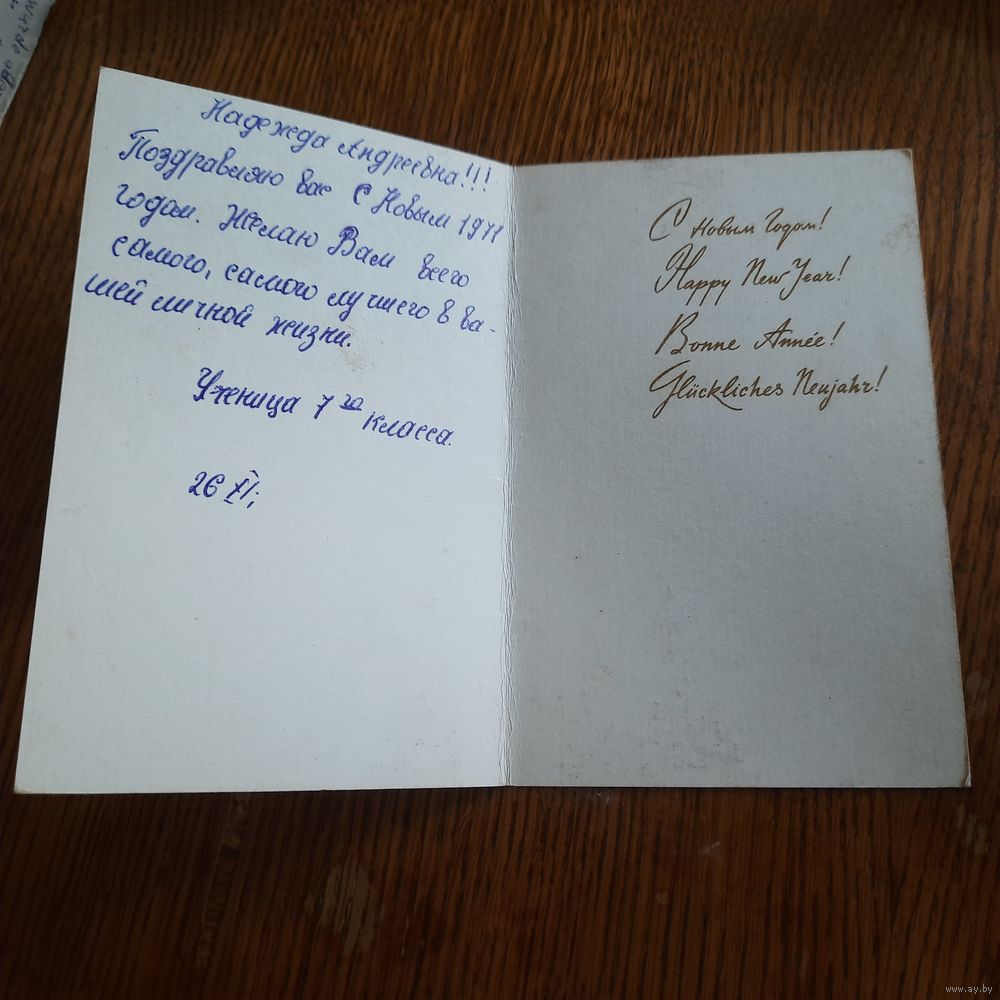 Надежда Андреевна!!!
Поздравляю вас С Новым 1971
годом. Желаю Вам всего
самого, самого лучшего в ва-
шей личной жизни.
Ученица 7го класса.
26 XI;
С Новым Годом!
Happy New Year!
Bonne Année!
Glückliches Neujahr!
www.ay.by